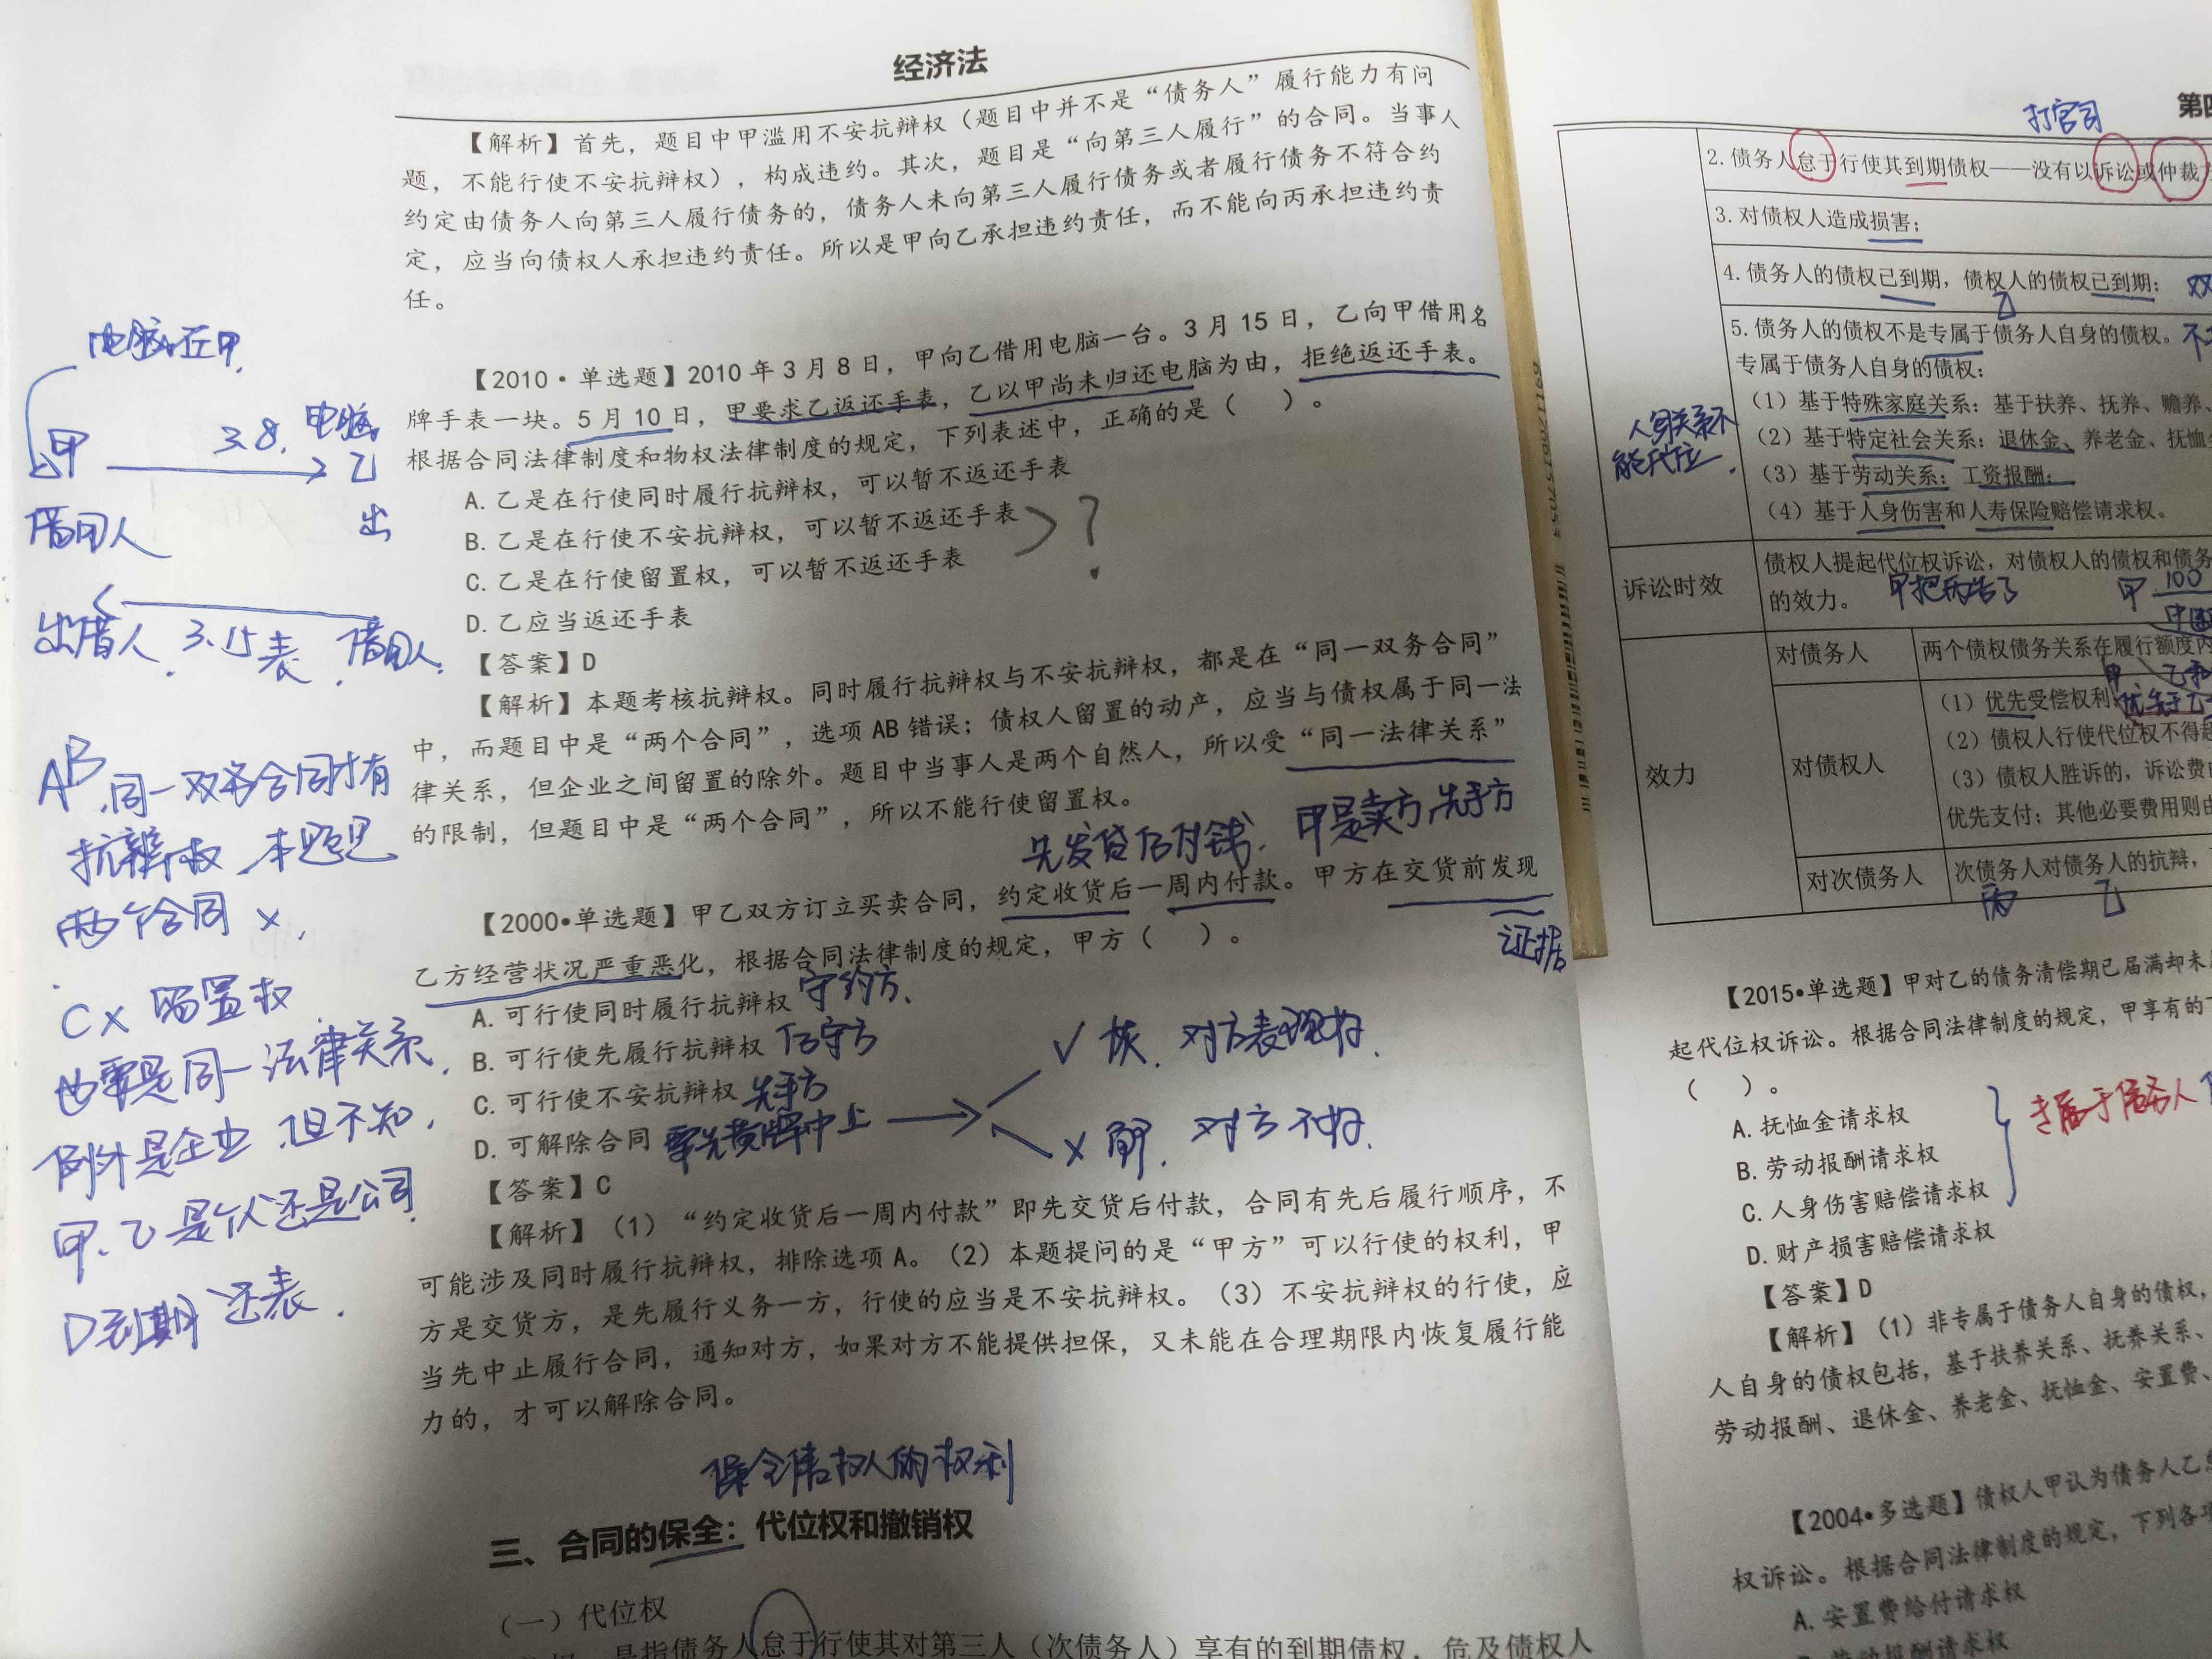 经济法
【解析】首先，题目中甲滥用不安抗辩权（题目中并不是“债务人”履行能力有问
题，不能行使不安抗辩权），构成违约。其次，题目是“向第三人履行”的合同。当事人
约定由债务人向第三人履行债务的，债务人未向第三人履行债务或者履行债务不符合约
定，应当向债权人承担违约责任。所以是甲向乙承担违约责任，而不能向丙承担违约责
任。
【2010·单选题】2010 年 3 月 8 日，甲向乙借用电脑一台。3 月 15 日，乙向甲借用名
牌手表一块。5 月 10 日，甲要求乙返还手表，乙以甲尚未归还电脑为由，拒绝返还手表。
根据合同法律制度和物权法律制度的规定，下列表述中，正确的是（ ）。
A. 乙是在行使同时履行抗辩权，可以暂不返还手表
B. 乙是在行使不安抗辩权，可以暂不返还手表
C. 乙是在行使留置权，可以暂不返还手表
?
D. 乙应当返还手表
【答案】D
【解析】本题考核抗辩权。同时履行抗辩权与不安抗辩权，都是在“同一双务合同”
中，而题目中是“两个合同”，选项 AB 错误；债权人留置的动产，应当与债权属于同一法
律关系，但企业之间留置的除外。题目中当事人是两个自然人，所以受“同一法律关系”
的限制，但题目中是“两个合同”，所以不能行使留置权。
先发货后付钱. 甲是卖方,先手方
【2000•单选题】甲乙双方订立买卖合同，约定收货后一周内付款。甲方在交货前发现
乙方经营状况严重恶化，根据合同法律制度的规定，甲方（ ）。
证据
A. 可行使同时履行抗辩权 守约方.
B. 可行使先履行抗辩权 后守方
C. 可行使不安抗辩权 先手方
D. 可解除合同
√ 恢. 对方表现好.
× 解. 对方不好.
【答案】C
【解析】（1）“约定收货后一周内付款”即先交货后付款，合同有先后履行顺序，不
可能涉及同时履行抗辩权，排除选项 A。（2）本题提问的是“甲方”可以行使的权利，甲
方是交货方，是先履行义务一方，行使的应当是不安抗辩权。（3）不安抗辩权的行使，应
当先中止履行合同，通知对方，如果对方不能提供担保，又未能在合理期限内恢复履行能
力的，才可以解除合同。
保全债权人的权利
三、合同的保全：代位权和撤销权
（一）代位权
是指债务人怠于行使其对第三人（次债务人）享有的到期债权，危及债权人
电脑在甲.
甲 3.8. 电脑 乙
借用人 出
出借人. 3.15 表. 借用人.
AB.同一双务合同才有
抗辩权 本题是
两个合同 ×.
C× 留置权
也要是同一法律关系.
例外是企业.但不知.
甲、乙是个人还是公司.
D到期 还表.
打官司
第四
2. 债务人怠于行使其到期债权——没有以诉讼或仲裁
3. 对债权人造成损害；
4. 债务人的债权已到期，债权人的债权已到期； 双
乙
5. 债务人的债权不是专属于债务人自身的债权。
专属于债务人自身的债权：
（1）基于特殊家庭关系：基于扶养、抚养、赡养、
（2）基于特定社会关系：退休金、养老金、抚恤
（3）基于劳动关系：工资报酬；
（4）基于人身伤害和人寿保险赔偿请求权。
人身关系不
能代位.
诉讼时效
债权人提起代位权诉讼，对债权人的债权和债务
的效力。 甲把丙告了 甲 100
效力
对债务人
两个债权债务关系在履行额度内
对债权人
（1）优先受偿权利 优先于乙
（2）债权人行使代位权不得超
（3）债权人胜诉的，诉讼费由
优先支付；其他必要费用则由
对次债务人
次债务人对债务人的抗辩，
丙 乙
【2015•单选题】甲对乙的债务清偿期已届满却未
起代位权诉讼。根据合同法律制度的规定，甲享有的下
（ ）。
A. 抚恤金请求权
B. 劳动报酬请求权
C. 人身伤害赔偿请求权
专属于债务人
D. 财产损害赔偿请求权
【答案】D
【解析】（1）非专属于债务人自身的债权，
人自身的债权包括，基于扶养关系、抚养关系、
劳动报酬、退休金、养老金、抚恤金、安置费、
【2004•多选题】债权人甲认为债务人乙怠
权诉讼。根据合同法律制度的规定，下列各项
A. 安置费给付请求权
劳动报酬请求权